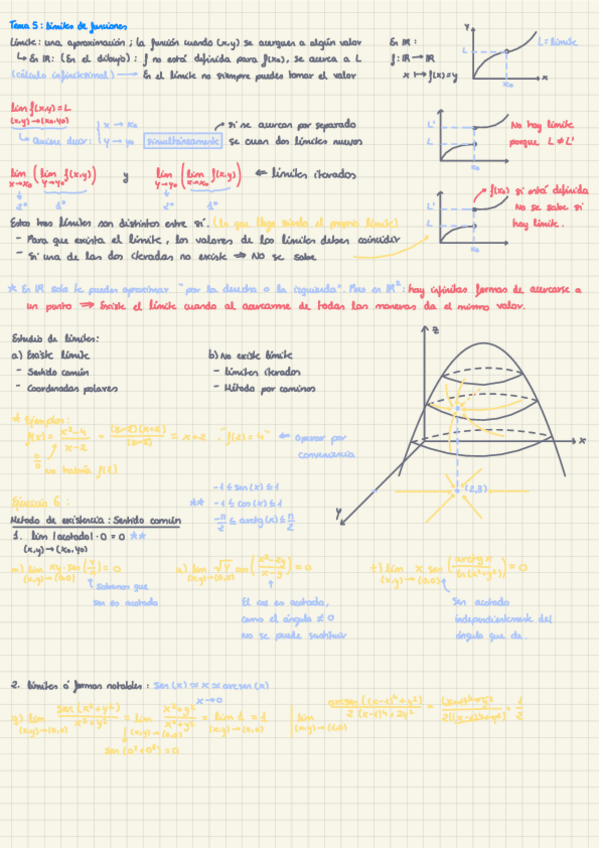 Tema 5: Límites de funciones
Límite: una aproximación; la función cuando (x,y) se acerquen a algún valor
↳ En IR: (En el dibujo): f no está definida para f(x₀), se acerca a L
(cálculo infinitesimal) → En el límite no siempre puedes tomar el valor
En IR:
f: IR → IR
x ↦ f(x)=y
Y
L
L=límite
x₀
x
lím f(x,y)=L
(x,y)→(x₀,y₀)
↳ quiere decir: { x → x₀
y → y₀
simultáneamente
si se acercan por separado
se crean dos límites nuevos
L'
L
x₀
No hay límite
porque L ≠ L'
lím (lím f(x,y)) y lím (lím f(x,y)) ⇐ límites iterados
x→x₀ y→y₀ y→y₀ x→x₀
2º 1º 2º 1º
L'
L
x₀
f(x₀) sí está definida
No se sabe si
hay límite.
Estos tres límites son distintos entre sí. (lo que llega siendo el propio límite)
- Para que exista el límite, los valores de los límites deben coincidir
- Si una de las dos iteradas no existe ⇒ NO se sabe
* En IR solo te puedes aproximar "por la derecha o la izquierda". Pero en IR²: hay infinitas formas de acercarse a
un punto ⇒ Existe el límite cuando al acercarme de todas las maneras da el mismo valor.
Estudio de límites:
a) Existe límite
- Sentido común
- Coordenadas polares
b) No existe límite
- Límites iterados
- Método por caminos
z
x
y
(2,3)
* Ejemplos:
f(x) = x²-4 / x-2 = (x-2)(x+2) / (x-2) = x+2 . "f(2)=4" ← operar por
conveniencia
No habría f(2)
Ejercicio 6:
** -1 ≤ sen(x) ≤ 1
-1 ≤ cos(x) ≤ 1
-π/2 ≤ arctg(x) ≤ π/2
Método de existencia: Sentido común
1. lím |acotado| · 0 = 0 **
(x,y)→(x₀,y₀)
(x,y)→(0,0)
Sabemos que
sen es acotada
El cos es acotado,
como el ángulo ≠ 0
no se puede sustituir
Sen acotado
independientemente del
ángulo que de.
2. Límites ó formas notables: sen(x) ≃ x ≃ arcsen(x)
x→0
g) lím sen(x²+y²) / x²+y² = lím x²+y² / x²+y² = lím 1 = 1
(x,y)→(0,0) (x,y)→(0,0) (x,y)→(0,0)
sen(0²+0²)=0
lím arcsen((x-1)²+y²) / 2(x-1)²+2y² = (x-1)²+y² / 2((x-1)²+y²) = 1/2
(x,y)→(1,0)